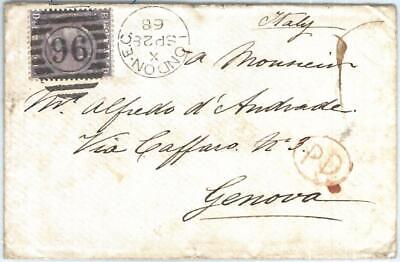 Italy
96
LONDON-E.C
X
SP28
68
a Monsieur
Mr. Alfredo d'Andrade.
Via Caffaro. No 3.
P.D.
Genova